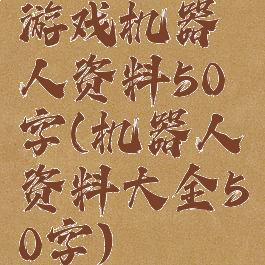 游戏机器
人资料50
字(机器人
资料大全5
0字)